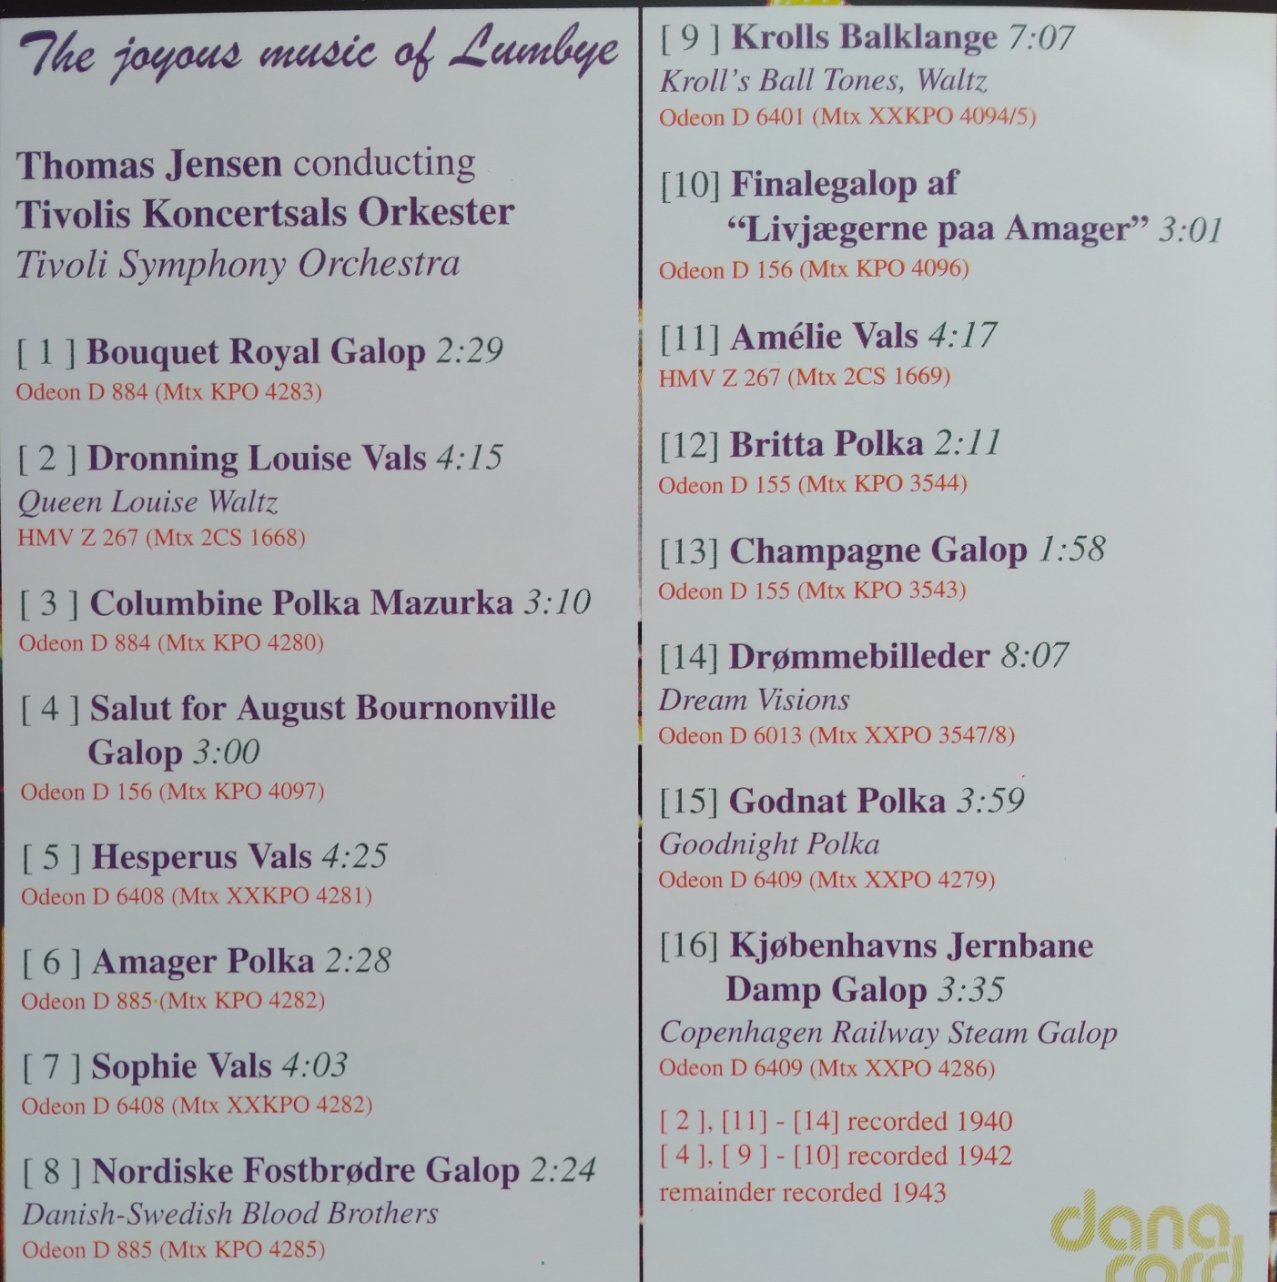 The joyous music of Lumbye
Thomas Jensen conducting
Tivolis Koncertsals Orkester
Tivoli Symphony Orchestra
[ 1 ] Bouquet Royal Galop 2:29
Odeon D 884 (Mtx KPO 4283)
[ 2 ] Dronning Louise Vals 4:15
Queen Louise Waltz
HMV Z 267 (Mtx 2CS 1668)
[ 3 ] Columbine Polka Mazurka 3:10
Odeon D 884 (Mtx KPO 4280)
[ 4 ] Salut for August Bournonville
Galop 3:00
Odeon D 156 (Mtx KPO 4097)
[ 5 ] Hesperus Vals 4:25
Odeon D 6408 (Mtx XXKPO 4281)
[ 6 ] Amager Polka 2:28
Odeon D 885 (Mtx KPO 4282)
[ 7 ] Sophie Vals 4:03
Odeon D 6408 (Mtx XXKPO 4282)
[ 8 ] Nordiske Fostbrødre Galop 2:24
Danish-Swedish Blood Brothers
Odeon D 885 (Mtx KPO 4285)
[ 9 ] Krolls Balklange 7:07
Kroll's Ball Tones, Waltz
Odeon D 6401 (Mtx XXKPO 4094/5)
[10] Finalegalop af
“Livjægerne paa Amager” 3:01
Odeon D 156 (Mtx KPO 4096)
[11] Amélie Vals 4:17
HMV Z 267 (Mtx 2CS 1669)
[12] Britta Polka 2:11
Odeon D 155 (Mtx KPO 3544)
[13] Champagne Galop 1:58
Odeon D 155 (Mtx KPO 3543)
[14] Drømmebilleder 8:07
Dream Visions
Odeon D 6013 (Mtx XXPO 3547/8)
[15] Godnat Polka 3:59
Goodnight Polka
Odeon D 6409 (Mtx XXPO 4279)
[16] Kjøbenhavns Jernbane
Damp Galop 3:35
Copenhagen Railway Steam Galop
Odeon D 6409 (Mtx XXPO 4286)
[ 2 ], [11] - [14] recorded 1940
[ 4 ], [ 9 ] - [10] recorded 1942
remainder recorded 1943
dana
cord